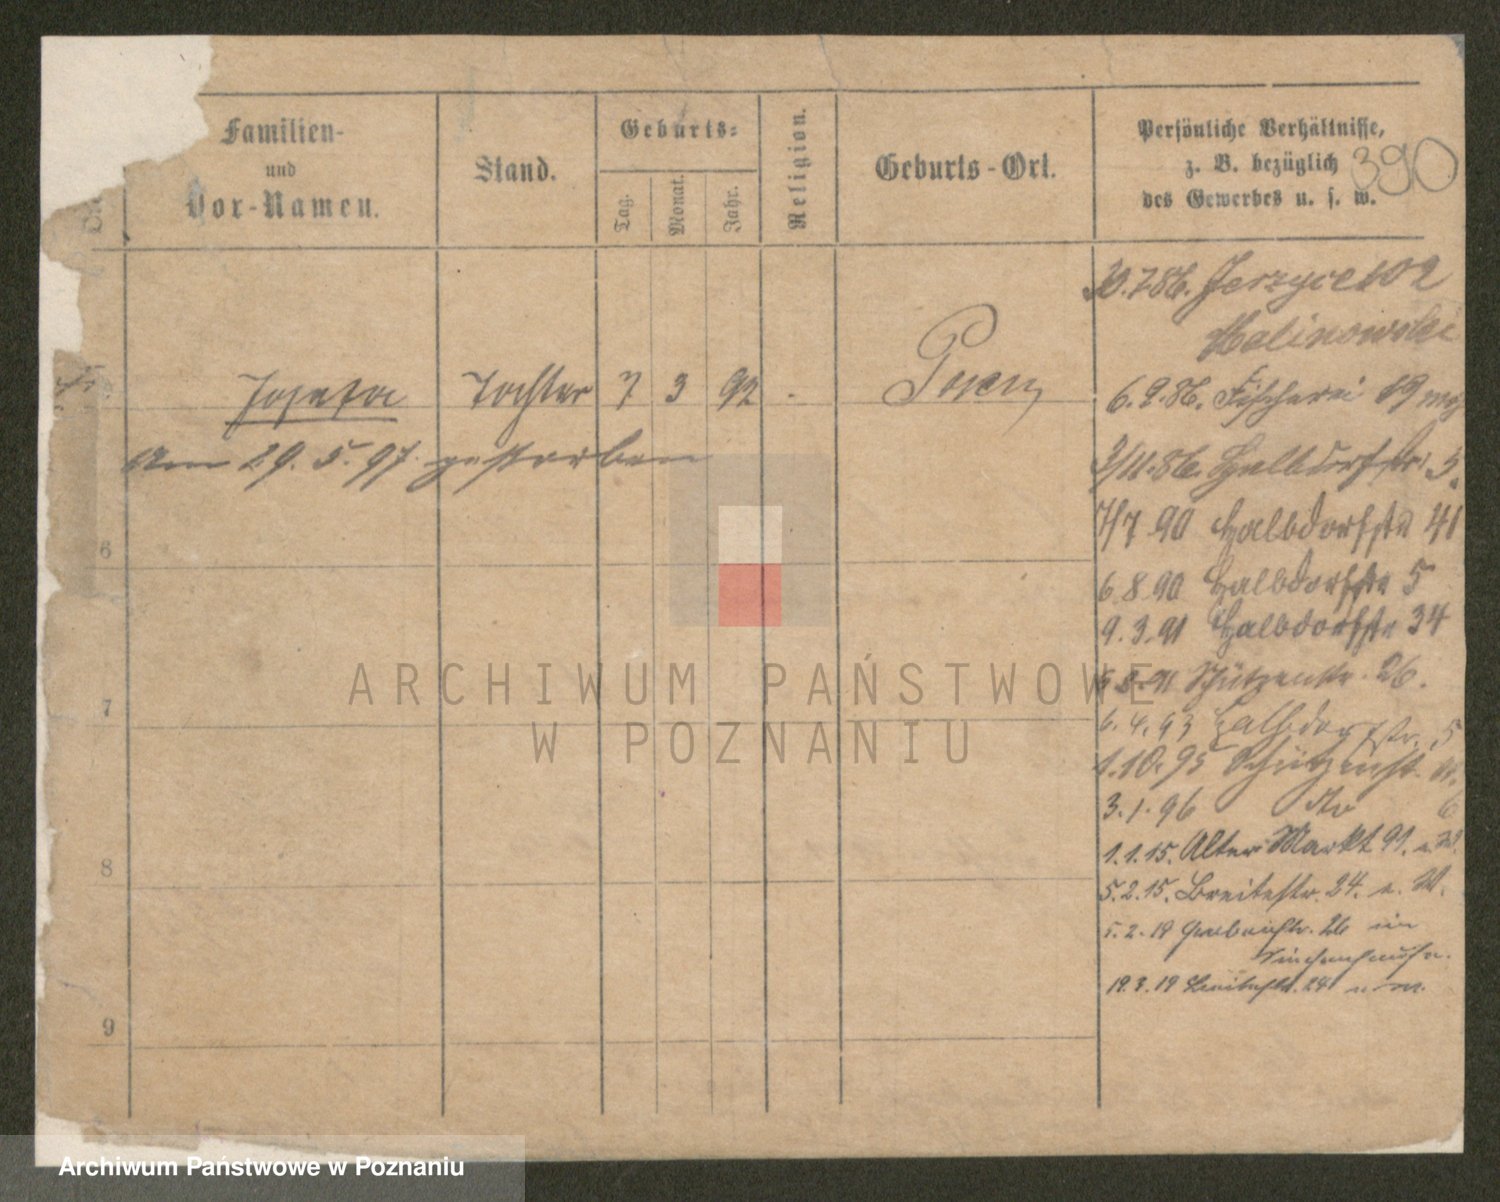 Familien-
und
Vor-Namen.
Stand.
Geburts-
Tag.
Monat.
Jahr.
Religion.
Geburts-Ort.
Persönliche Verhältnisse,
z. B. bezüglich
des Gewerbes u. s. w.
390
30.7.86. Jerzyce 102
Malinowski
Josefa Tochter 7 3 92 - Posen
am 29.5.97. gestorben
6.9.86. Fischerei
3/11.86. Halbdorfstr. 5.
7/7 90 Halbdorfstr 41
6 8 90 Halbdorfstr 5
9.3.91 Halbdorfstr 34
Schützenstr. 26.
6.4.93 Halbdorfstr. 5
1.10.95 Schützenstr.
3.1.96 dto 6
1.1.15. Alter Markt 91.
5.2.15. Breitestr. 24. W.
5.2.19 26 im
19.3.19 Breitestr. 24
6
7
8
9
ARCHIWUM PAŃSTWOWE
W POZNANIU
Archiwum Państwowe w Poznaniu